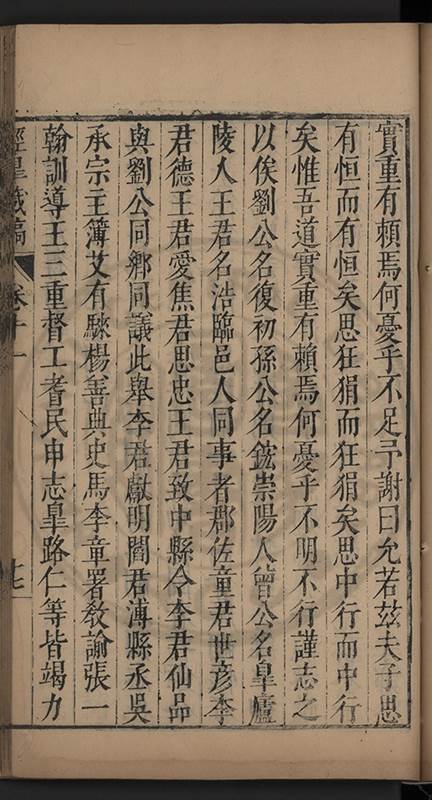 實重有賴焉何憂乎不足予謝曰允若茲夫子思
有恒而有恒矣思狂狷而狂狷矣思中行而中行
矣惟吾道實重有賴焉何憂乎不明不行謹志之
以俟劉公名復初孫公名鋐崇陽人曾公名皐廬
陵人王君名浩臨邑人同事者郡佐童君世彥李
君德王君愛焦君思忠王君致中縣令李君仙品
與劉公同鄉同議此舉李君獻明閻君溥縣丞吳
承宗主簿艾有騋楊善典史馬李童署教諭張一
翰訓導王三重督工耆民申志皐路仁等皆竭力
卷十一
十七